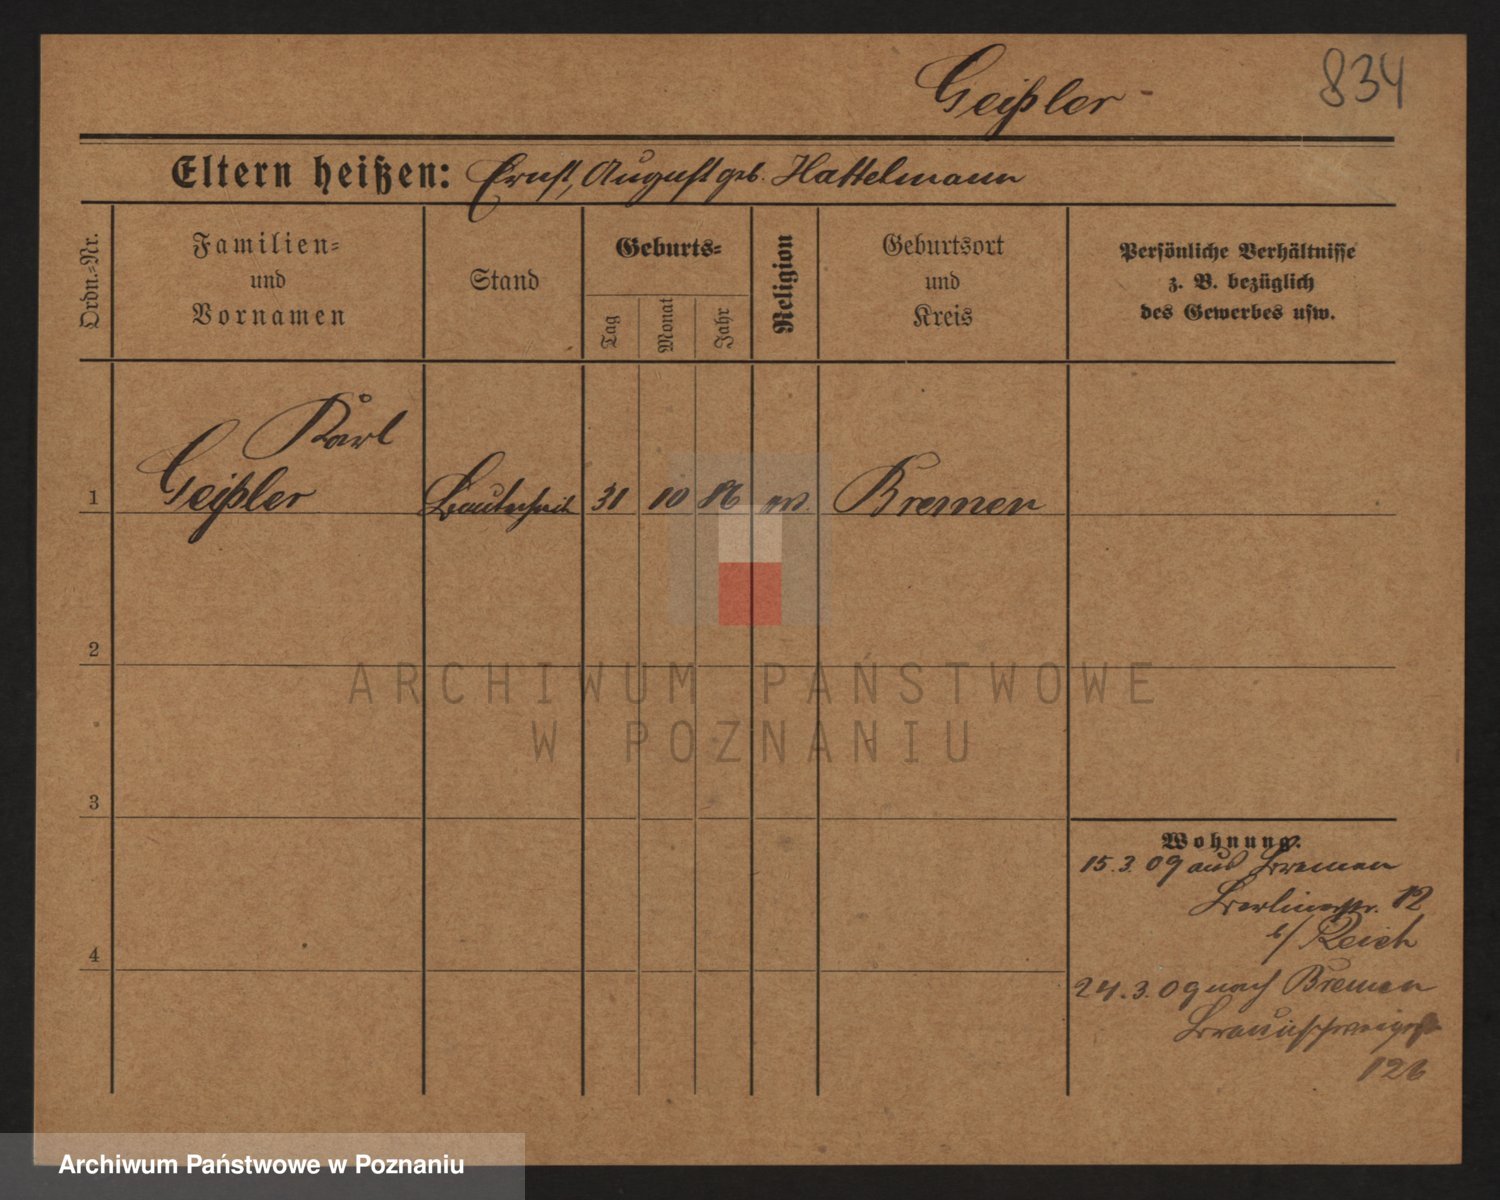 Geißler
834
Eltern heißen: Ernst, August geb. Hattelmann
Ordn.=Nr.
Familien=
und
Vornamen
Stand
Geburts=
Tag
Monat
Jahr
Religion
Geburtsort
und
Kreis
Persönliche Verhältnisse
z. B. bezüglich
des Gewerbes usw.
Karl
1 Geißler 31 10 86 ev. Bremen
2
3
4
Wohnung.
15.3.09 aus Bremen
Berlinerstr. 12
b/ Reich
24.3.09 nach Bremen
Braunschweigerstr
126
ARCHIWUM PAŃSTWOWE
W POZNANIU
Archiwum Państwowe w Poznaniu